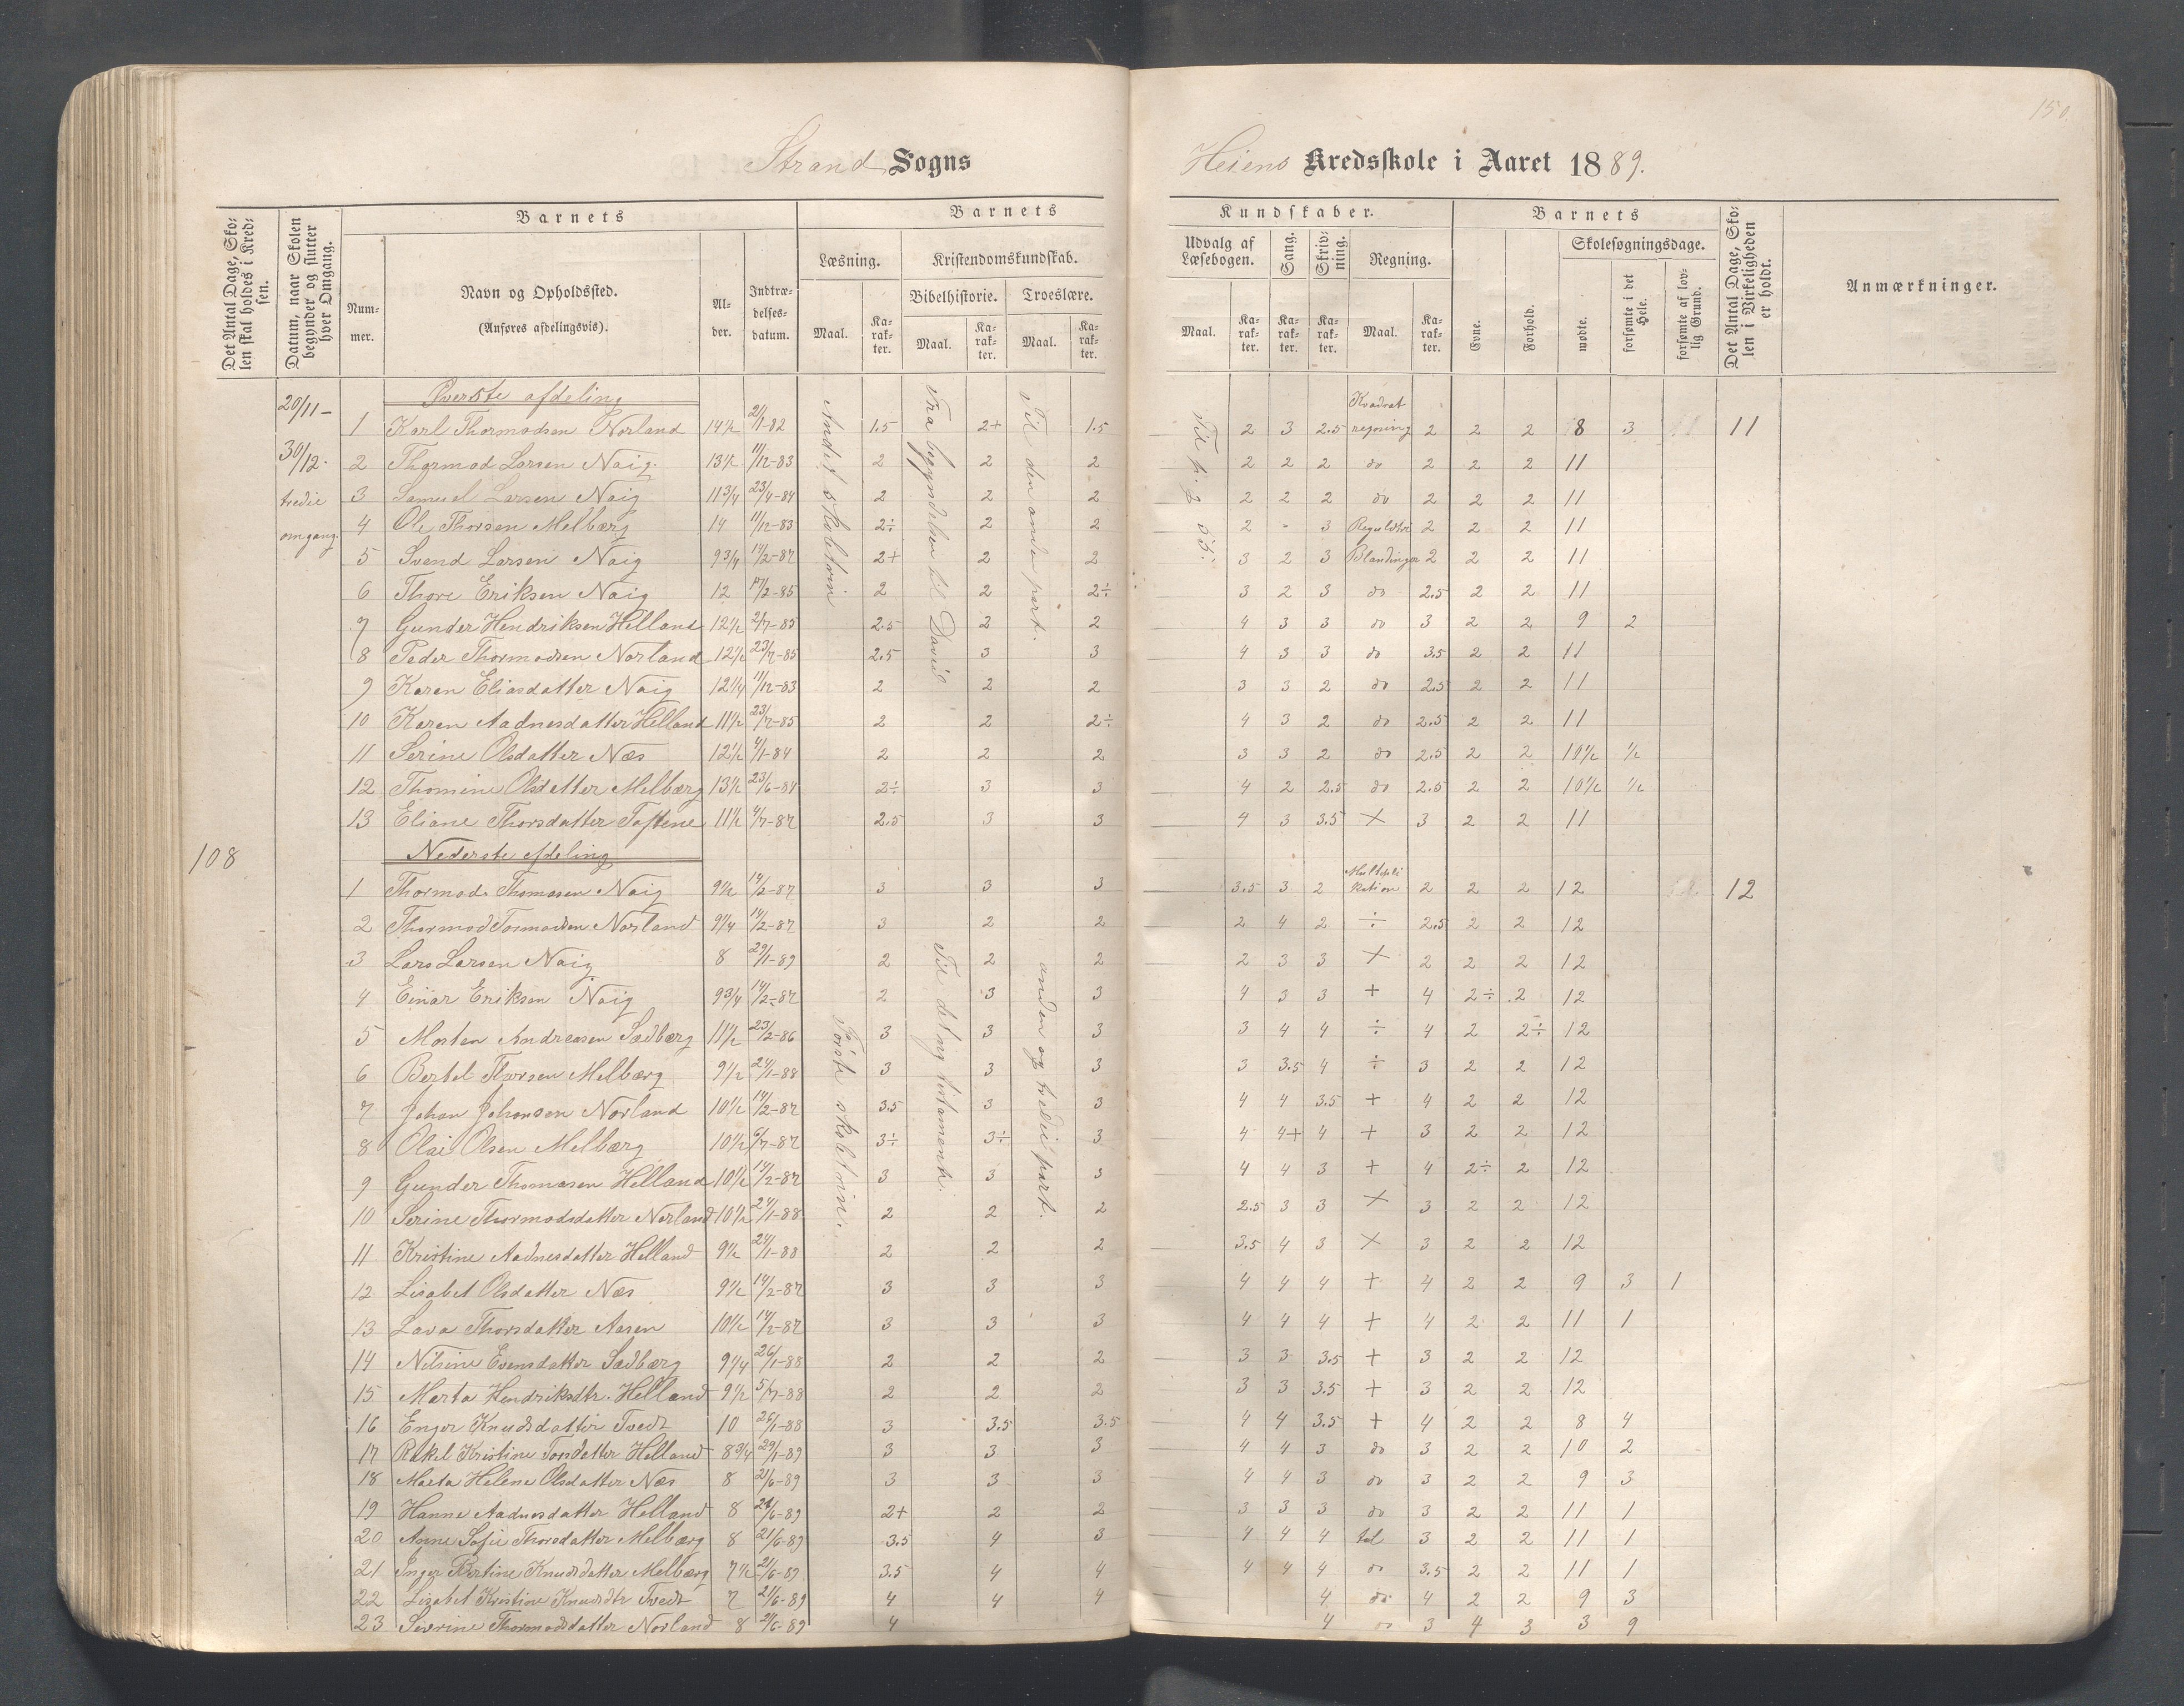 150.
Strand Sogns Heiens Kredsskole i Aaret 1889.
Det Antal Dage, Skolen skal holdes i Kredsen.
Datum, naar Skolen begynder og slutter hver Omgang.
Barnets
Nummer.
Navn og Opholdssted.
(Anføres afdelingsvis).
Alder.
Indtrædelsesdatum.
Barnets Kundskaber.
Læsning.
Maal.
Karakter.
Kristendomskundskab.
Bibelhistorie.
Maal.
Karakter.
Troeslære.
Maal.
Karakter.
Udvalg af Læsebogen.
Maal.
Karakter.
Sang.
Karakter.
Skrivning.
Karakter.
Regning.
Maal.
Karakter.
Barnets
Evne.
Forhold.
Skolesøgningsdage.
mødte.
forsømte i det Hele.
forsømte af lovlig Grund.
Det Antal Dage, Skolen i Virkeligheden er holdt.
Anmærkninger.
20/11 –
30/12.
tredie
omgang.
108
Andet skoletrin
Fra begyndelsen til David
Til den anden part.
Øverste afdeling
1 Karl Thormodsen Norland 14½ 2/1-82 1.5 2+ 1.5 2 3 2.5 Kvadratregning 2 2 2 8 3 11
2 Thormod Larsen Naig 13½ 11/12-83 2 2 2 2 2 2 do 2 2 2 11
3 Samuel Larsen Naig 11¾ 23/4-84 2 2 2 2 2 2 do 2 2 2 11
4 Ole Thorsen Melbærg 14 11/12-83 2÷ 2 2 2 - 3 Reguldetri 2 2 2 11
5 Svend Larsen Naig 9¾ 14/2-87 2+ 2 2 3 2 3 Blandinger 2 2 2 11
6 Thore Eriksen Naig 12 17/2-85 2 2 2÷ 3 2 3 do 2.5 2 2 11
7 Gunder Hendriksen Helland 12½ 2/7-85 2.5 2 2 4 3 3 do 3 2 2 9 2
8 Peder Thormodsen Norland 12½ 23/7-85 2.5 3 3 4 3 3 do 3.5 2 2 11
9 Karen Eliasdatter Naig 12¼ 11/12-83 2 2 2 3 3 2 do 2.5 2 2 11
10 Karen Aadnesdatter Helland 11½ 23/7-85 2 2 2÷ 4 3 2 do 2.5 2 2 11
11 Serine Olsdatter Næs 12½ 4/1-84 2 2 2 3 3 2 do 2.5 2 2 10½ ½
12 Thomine Olsdatter Melbærg 13½ 23/6-84 2÷ 3 3 4 2 2.5 do 2.5 2 2 10½ ½
13 Eliane Thorsdatter Toftene 11½ 4/7-87 2.5 3 3 4 3 3.5 × 3 2 2 11
Nederste afdeling
Første skoletrin.
Til det ny testamente.
anden og tredie part.
1 Thormod Thomasen Naig 9½ 14/2-87 3 3 3 3.5 3 2 Multiplikation 2 2 2 12 12
2 Thormod Tormodsen Norland 9¼ 14/2-87 3 2 2 2 4 2 ÷ 2.5 2 2 12
3 Lars Larsen Naig 8 29/1-89 2 2 2 2 3 3 × 2 2 2 12
4 Einar Eriksen Naig 9¾ 14/2-87 2 3 3 4 3 3 + 4 2÷ 2 12
5 Morten Andreasen Sædbærg 11½ 23/2-86 3 3 3 3 4 4 ÷ 4 2 2÷ 12
6 Bertel Thorsen Melbærg 9½ 24/1-88 3 3 3 3 3.5 4 ÷ 3 2 2 12
7 Johan Johansen Norland 10½ 14/2-87 3.5 3 3 4 4 3.5 + 4 2 2 12
8 Olai Olsen Melbærg 10½ 6/7-87 3÷ 3÷ 3 4 4+ 4 + 3 2 2 12
9 Gunder Thomasen Helland 10½ 14/2-87 3 3 3 4 4 3 + 4 2÷ 2 12
10 Serine Thormodsdatter Norland 10½ 24/1-88 2 2 2 2.5 3 3 × 3 2 2 12
11 Kristine Aadnesdatter Helland 9½ 24/1-88 2 2 2 3.5 4 3 × 3 2 2 12
12 Lisabet Olsdatter Næs 9½ 14/2-87 3 3 3 4 4 4 + 4 2 2 9 3 1
13 Lava Thorsdatter Aasen 10½ 14/2-87 3 3 3 4 4 4 + 4 2 2 11 1
14 Nilsine Evensdatter Sædbærg 9¼ 26/1-88 2 2 2 3 3 3.5 + 3 2 2 12
15 Marta Hendriksdtr. Helland 9½ 5/7-88 2 2 2 3 3 3.5 + 3 2 2 12
16 Enger Knudsdatter Tvedt 10 26/1-88 3 3.5 3.5 4 4 3.5 + 4 2 2 8 4
17 Rakel Kristine Torsdatter Helland 8¾ 29/1-89 3 3 3 4 4 3 do 3 2 2 10 2
18 Marta Helene Olsdatter Næs 8 21/6-89 3 3 3 4 4 3 do 3 2 2 9 3
19 Hanne Aadnesdatter Helland 8 21/6-89 2+ 2 2 3 3 3 do 3 2 2 11 1
20 Anne Sofie Thorsdatter Melbærg 8 21/6-89 3.5 4 3 4 4 4 tal 3 2 2 11 1
21 Inger Bertine Knudsdatter Melbærg 7½ 21/6-89 3.5 4 4 4 4 4 do 3.5 2 2 11 1
22 Lisabet Kristine Knudsdtr Tvedt 7 21/6-89 4 4 4 4 do 4 2 2 9 3
23 Severine Thormodsdatter Norland 8 21/6-89 4 4 do 3 4 3 3 9